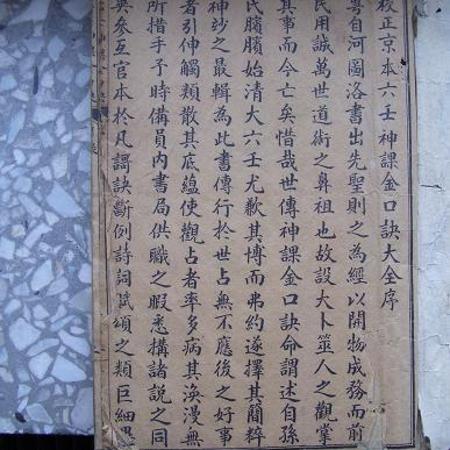 校正京本六壬神課金口訣大全序
粵自河圖洛書出先聖則之為經以開物成務而前
民用誠萬世道術之鼻祖也故設大卜筮人之觀掌
其事而今亡矣惜哉世傳神課金口訣命謂述自孫
氏臏臏始清大六壬尤歎其博而弗約遂擇其簡粹
神玅之最輯為此書傳行於世占無不應後之好事
者引伸觸類散其底蘊使觀占者率多病其渙漫無
所措手予時備員內書局供職之暇悉搆諸說之同
異參互官本於凡謌訣斷例詩詞賦頌之類巨細